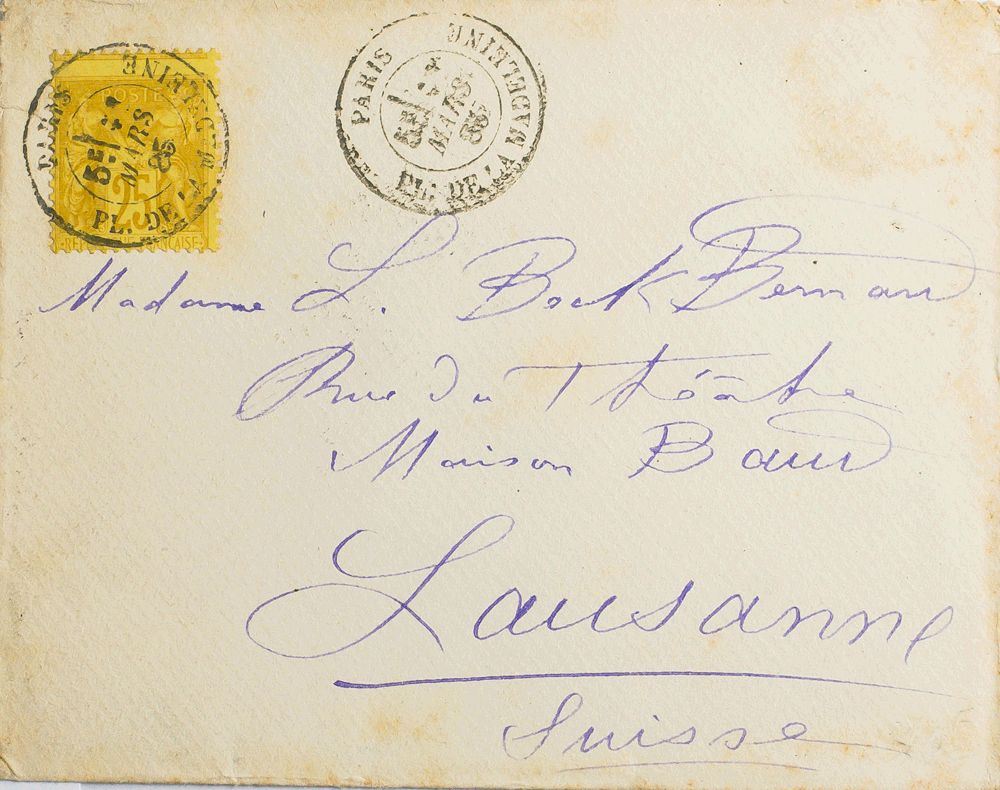 PARIS PL. DE LA MADELEINE
5E/ 4 MARS 86
POSTE
25
REPUBLIQUE FRANÇAISE
PARIS PL. DE LA MADELEINE
5E/ 4 MARS 86
Madame L. Bock Bernard
Rue du Théâtre
Maison Baud
Lausanne
Suisse